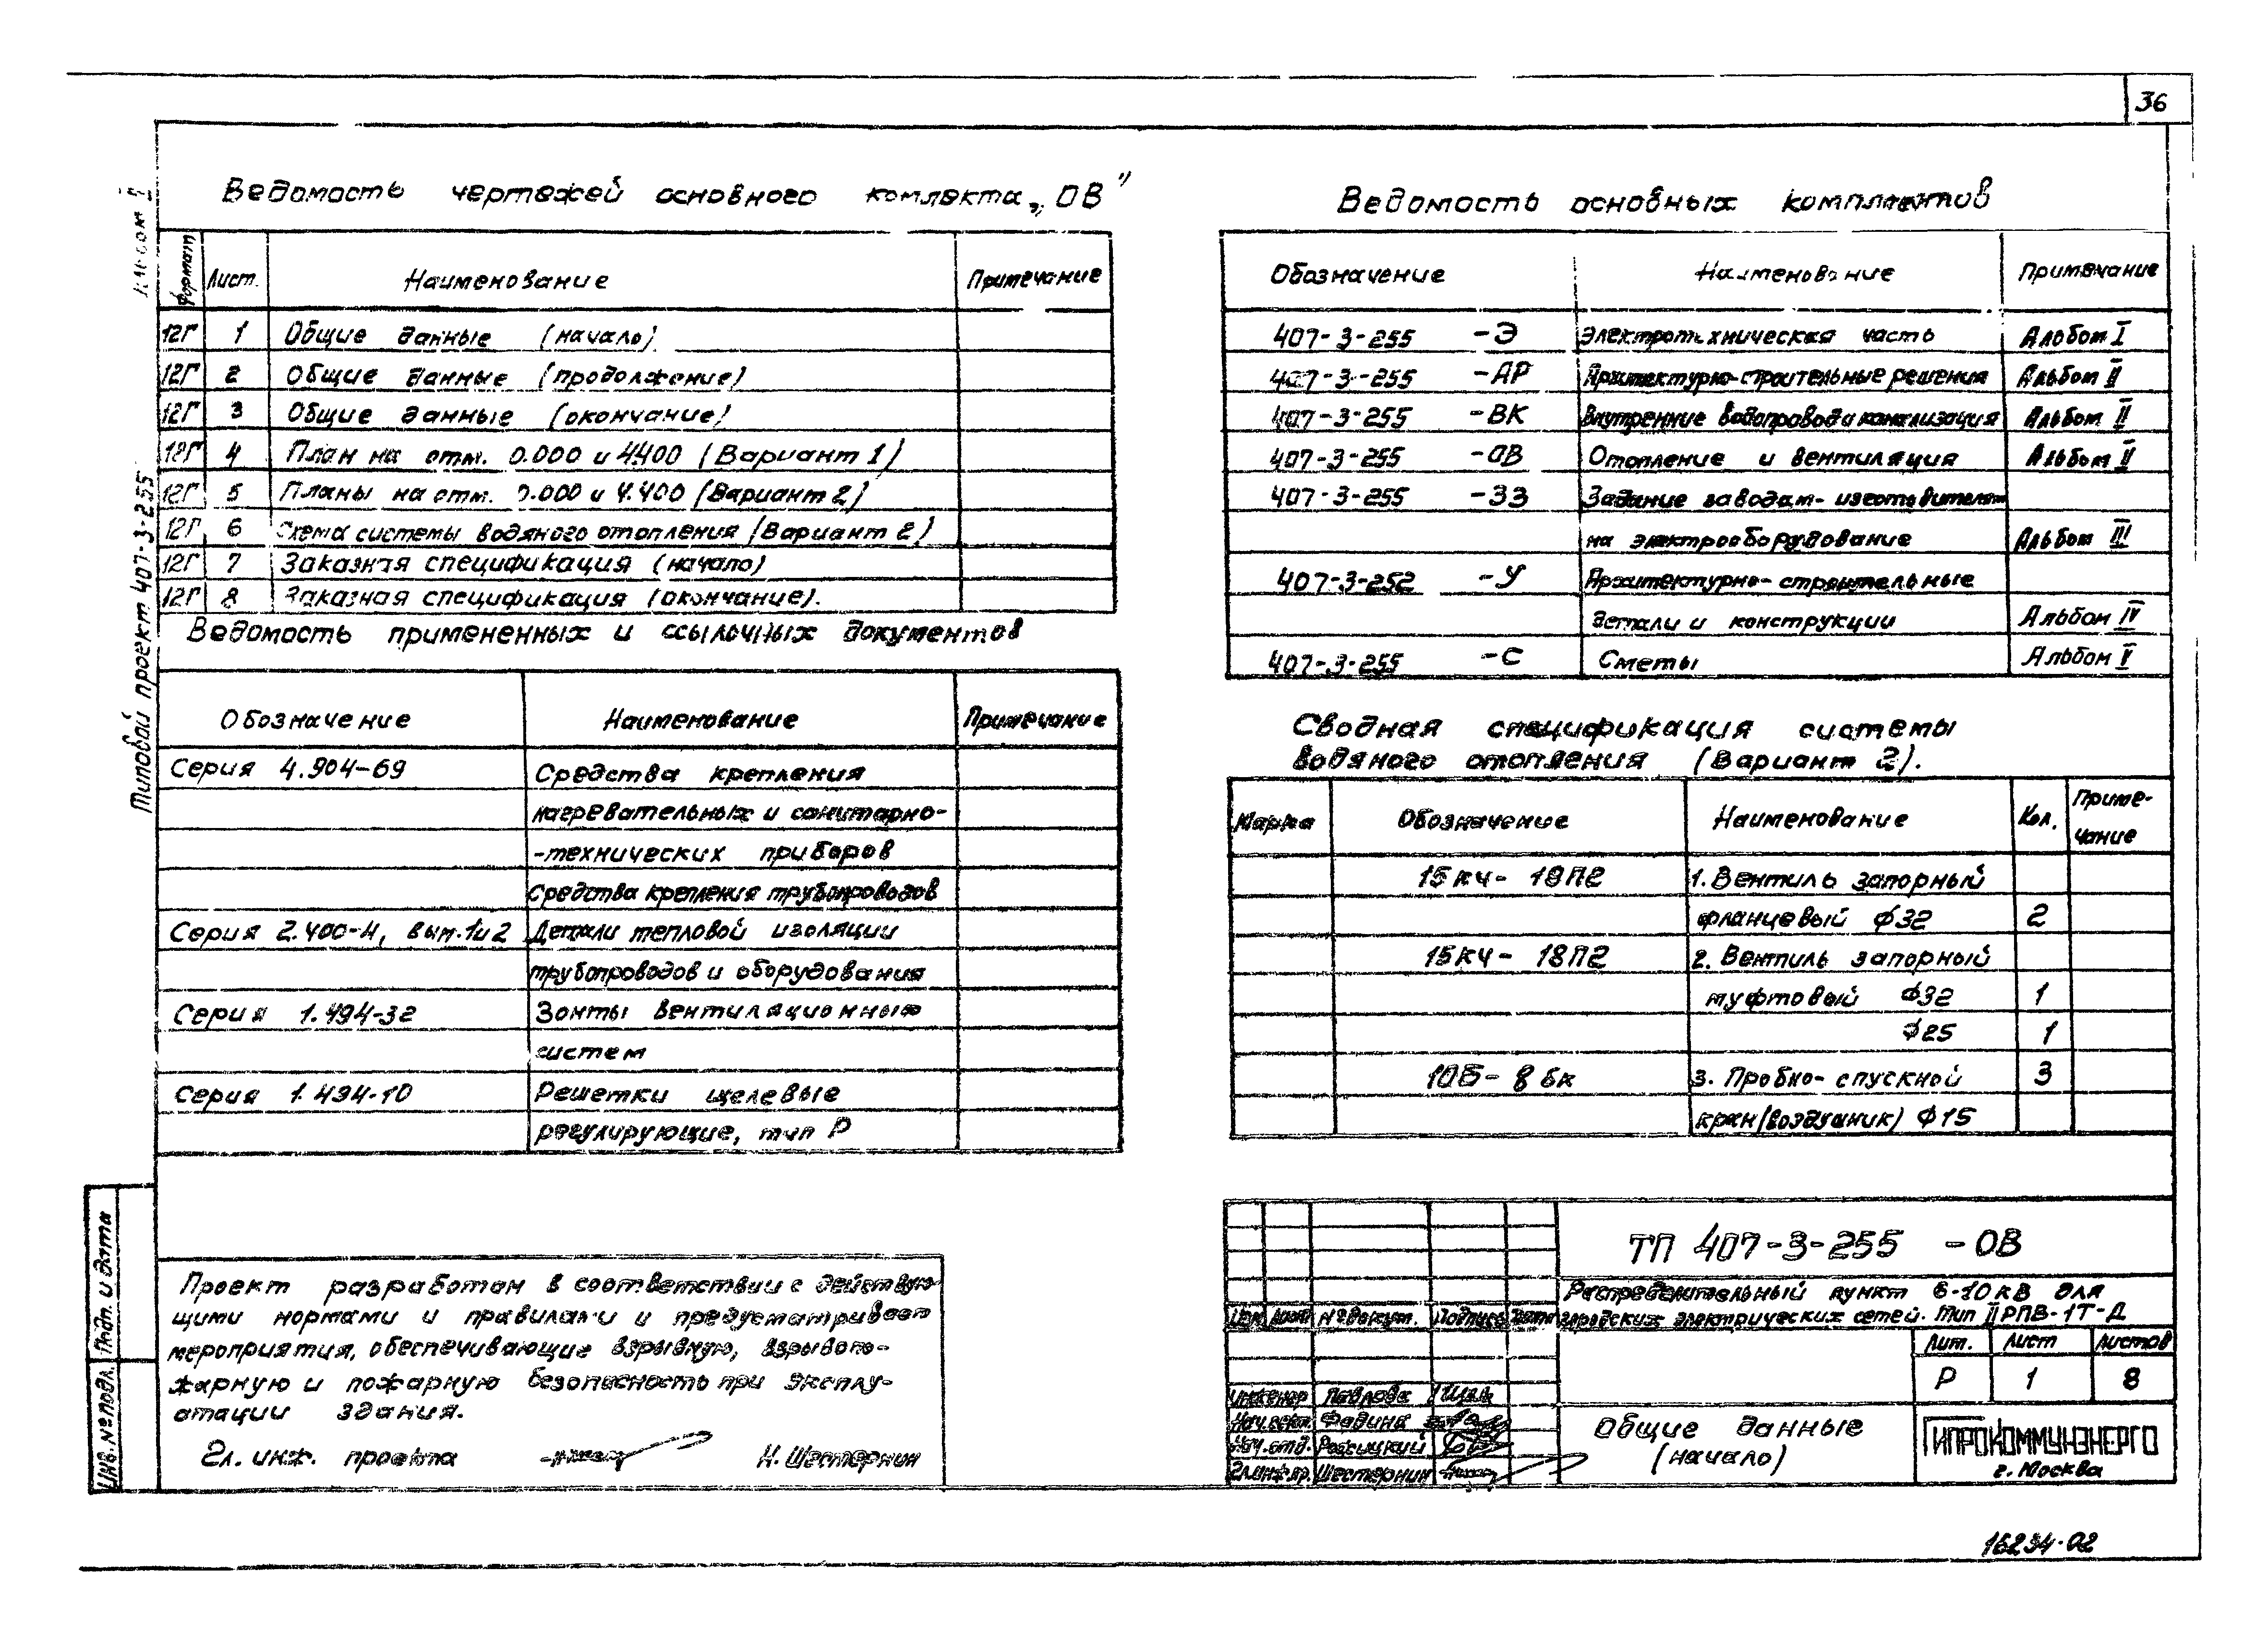 36
Ведомость чертежей основного комплекта „ОВ"
Формат Лист. Наименование Примечание
12Г 1 Общие данные (начало)
12Г 2 Общие данные (продолжение)
12Г 3 Общие данные (окончание)
12Г 4 План на отм. 0.000 и 4.400 (Вариант 1)
12Г 5 Планы на отм. 0.000 и 4.400 (Вариант 2)
12Г 6 Схема системы водяного отопления (Вариант 2)
12Г 7 Заказная спецификация (начало)
12Г 8 Заказная спецификация (окончание).
Ведомость примененных и ссылочных документов
Обозначение Наименование Примечание
Серия 4.904-69 Средства крепления
нагревательных и санитарно-
-технических приборов
Средства крепления трубопроводов
Серия 2.400-4, вып.1и2 Детали тепловой изоляции
трубопроводов и оборудования
Серия 1.494-32 Зонты вентиляционных
систем
Серия 1.494-10 Решетки щелевые
регулирующие, тип Р
Проект разработан в соответствии с действую-
щими нормами и правилами и предусматривает
мероприятия, обеспечивающие взрывную, взрывопо-
жарную и пожарную безопасность при эксплу-
атации здания.
Гл. инж. проекта Н. Шестернин
Типовой проект 407-3-255 Альбом II
Подп. и дата
Инв. № подл.
Ведомость основных комплектов
Обозначение Наименование Примечание
407-3-255 -Э Электротехническая часть Альбом I
407-3-255 -АР Архитектурно-строительные решения Альбом II
407-3-255 -ВК Внутренние водопровод и канализация Альбом II
407-3-255 -ОВ Отопление и вентиляция Альбом II
407-3-255 -ЗЗ Задание заводам-изготовителям
на электрооборудование Альбом III
407-3-252 -У Архитектурно-строительные
детали и конструкции Альбом IV
407-3-255 -С Сметы Альбом V
Сводная спецификация системы
водяного отопления (Вариант 2).
Марка Обозначение Наименование Кол. Приме-
чание
15кч-18П2 1. Вентиль запорный
фланцевый ф32 2
15кч-18П2 2. Вентиль запорный
муфтовый ф32 1
ф25 1
10Б-8бк 3. Пробно-спускной 3
кран (воздушник) ф15
ТП 407-3-255 -ОВ
Распределительный пункт 6-10кВ для
городских электрических сетей. Тип II РПВ-1Т-Д
Изм. Лист № докум. Подпись Дата
Лит. Лист Листов
Р 1 8
Инженер Павлова
Нач. сект. Фадина
Нач. отд.
Гл.инж.пр. Шестернин
Общие данные
(начало)
ГИПРОКОММУНЭНЕРГО
г. Москва
16234-02